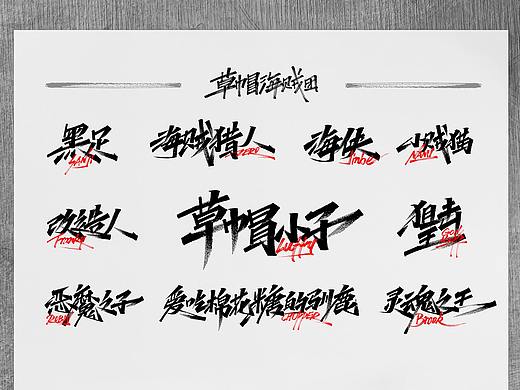 草帽海贼团
黑足 SANJI
海贼猎人 ZORO
海侠 Jinbe
小贼猫 NAMI
改造人 Franky
草帽小子 LUFFY
狙击王 God
恶魔之子 ROBIN
爱吃棉花糖的驯鹿 CHOPPER
灵魂之王 Brook